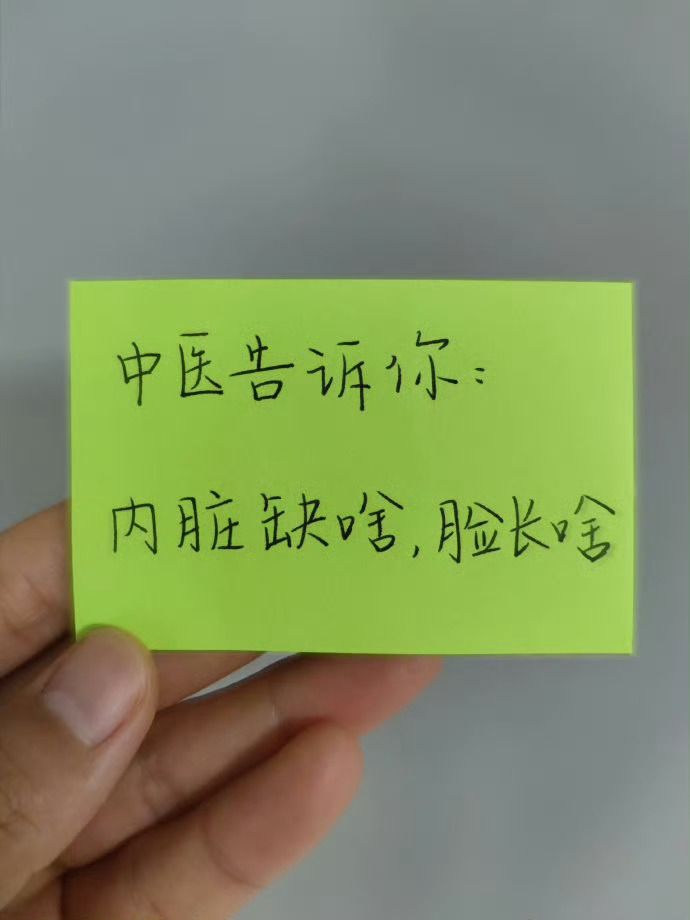 中医告诉你：
内脏缺啥，脸长啥